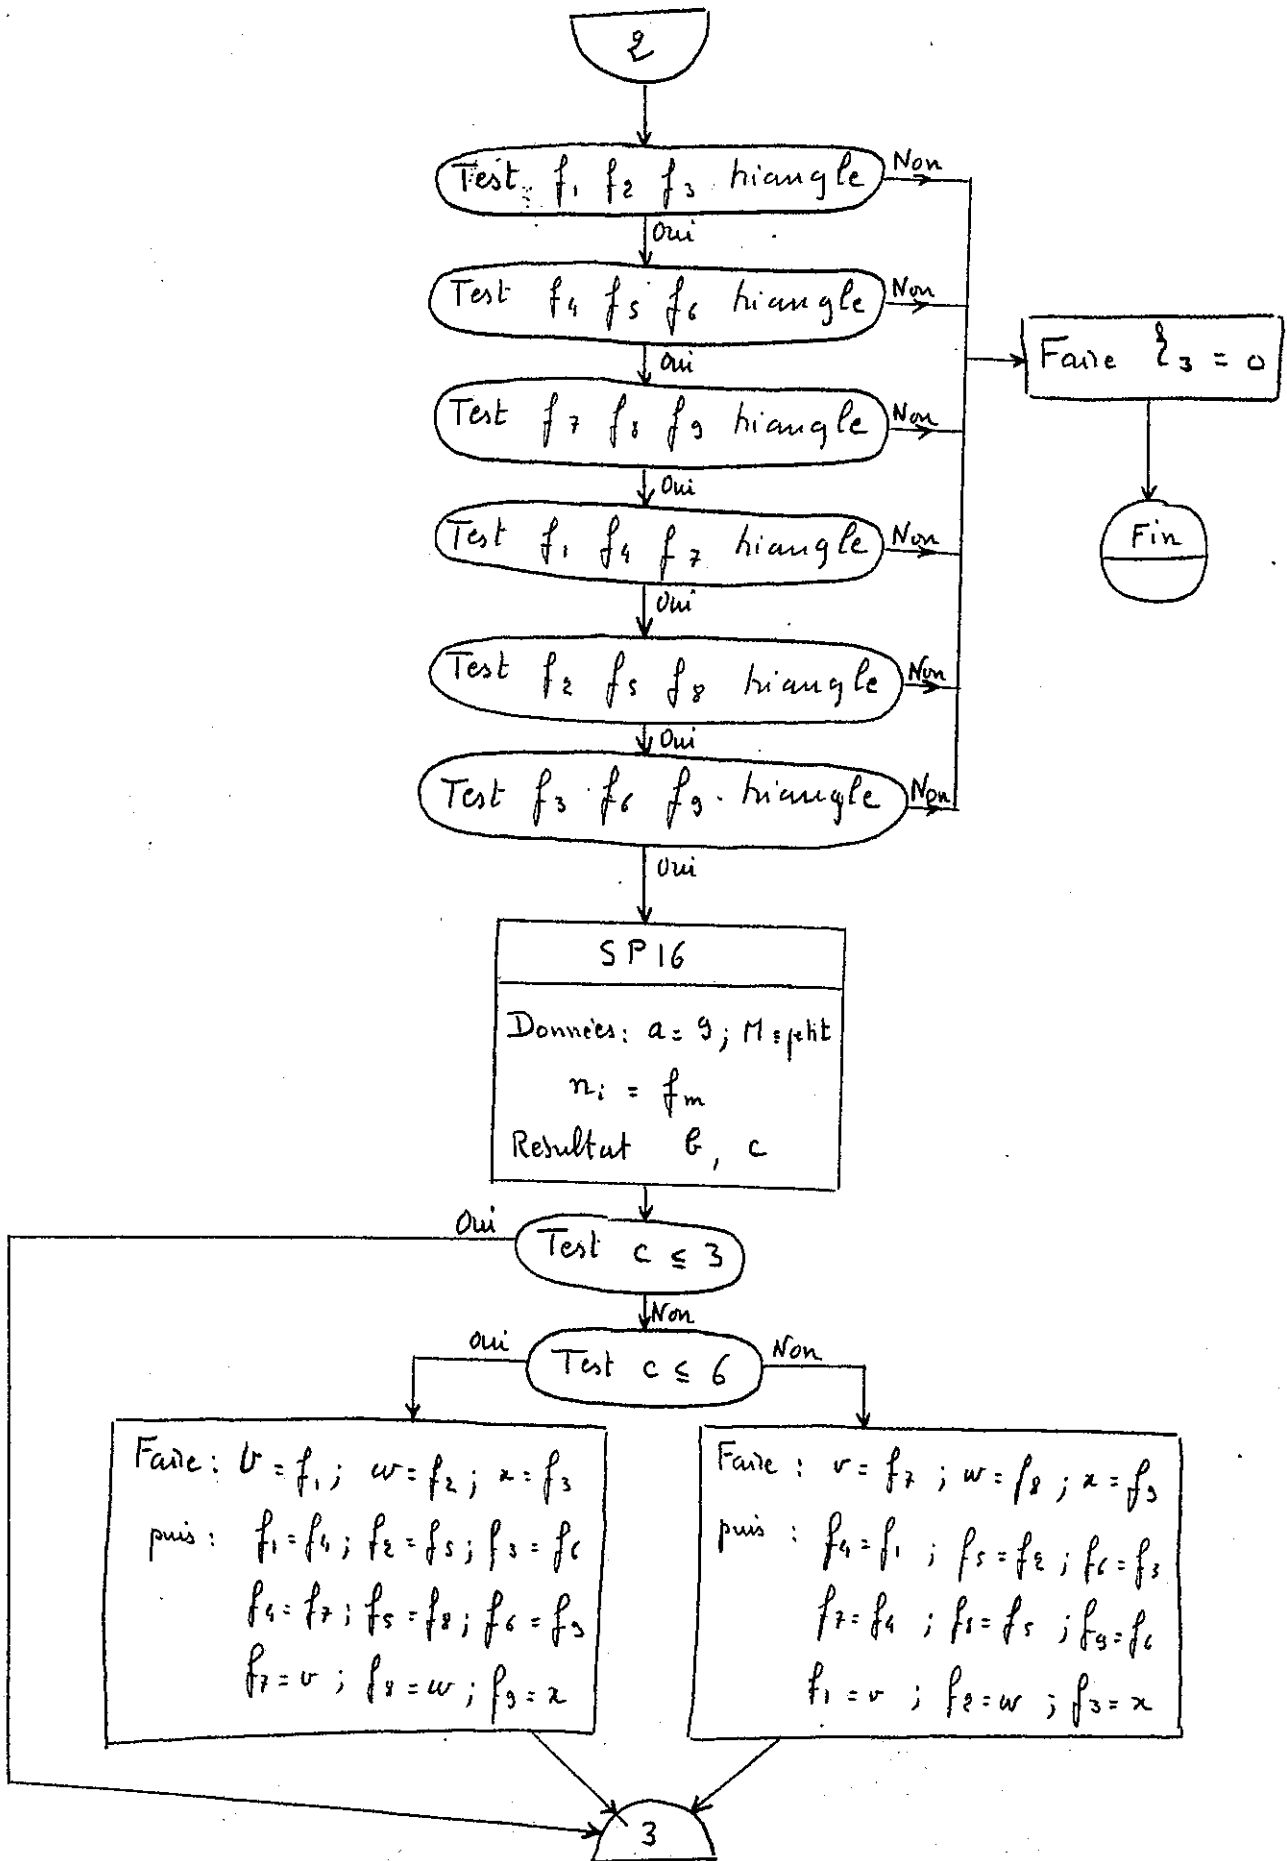 2
Test f₁ f₂ f₃ triangle
Non
Oui
Test f₄ f₅ f₆ triangle
Non
Oui
Faire ξ₃ = 0
Test f₇ f₈ f₉ triangle
Non
Oui
Fin
Test f₁ f₄ f₇ triangle
Non
Oui
Test f₂ f₅ f₈ triangle
Non
Oui
Test f₃ f₆ f₉ triangle
Non
Oui
SP16
Données: a = 9; M = petit
nᵢ = fₘ
Resultat b, c
Oui
Test c ≤ 3
Non
Oui
Test c ≤ 6
Non
Faire : v = f₁; w = f₂; x = f₃
puis : f₁ = f₄; f₂ = f₅; f₃ = f₆
f₄ = f₇; f₅ = f₈; f₆ = f₉
f₇ = v; f₈ = w; f₉ = x
Faire : v = f₇; w = f₈; x = f₉
puis : f₄ = f₁; f₅ = f₂; f₆ = f₃
f₇ = f₄; f₈ = f₅; f₉ = f₆
f₁ = v; f₂ = w; f₃ = x
3